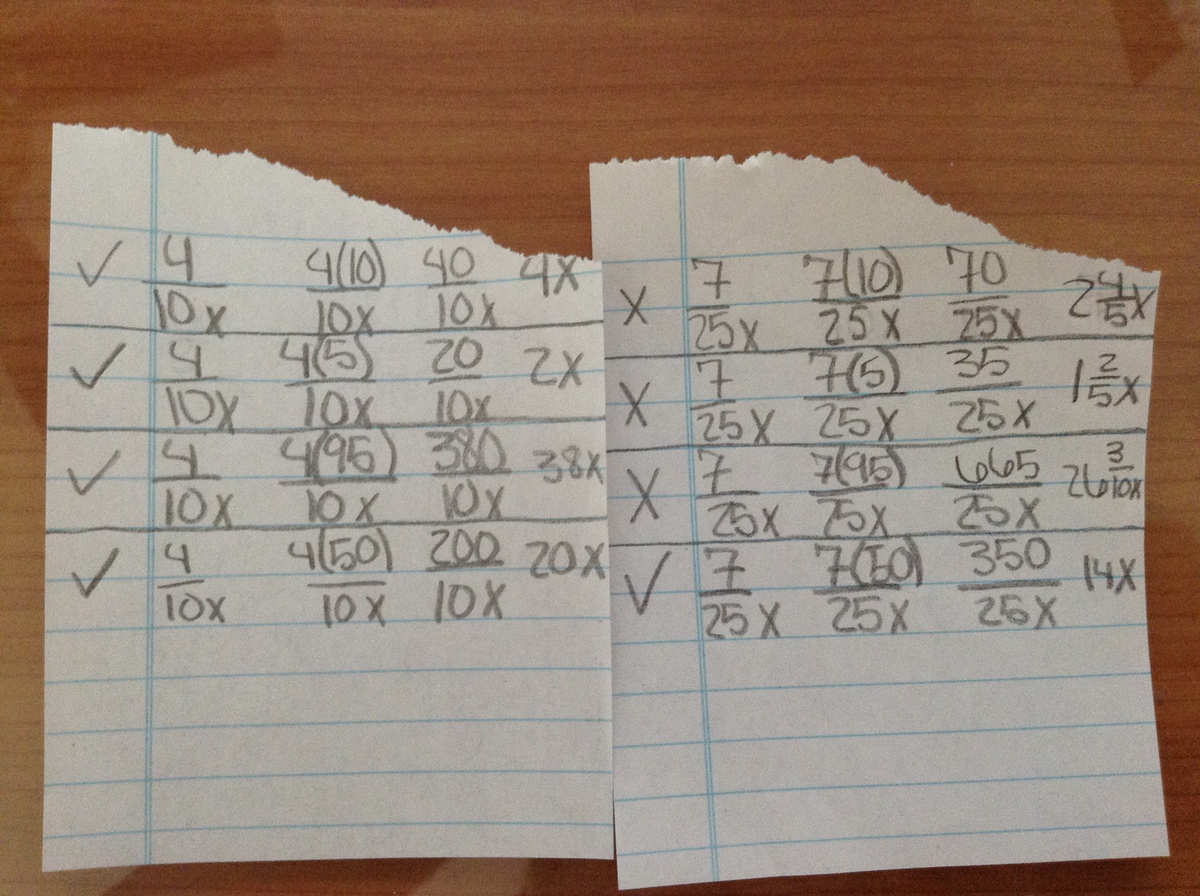 ✓ 4/10x 4(10)/10x 40/10x 4x
✓ 4/10x 4(5)/10x 20/10x 2x
✓ 4/10x 4(95)/10x 380/10x 38x
✓ 4/10x 4(50)/10x 200/10x 20x
x 7/25x 7(10)/25x 70/25x 2 4/5x
x 7/25x 7(5)/25x 35/25x 1 2/5x
x 7/25x 7(95)/25x 665/25x 26 3/10x
✓ 7/25x 7(50)/25x 350/25x 14x